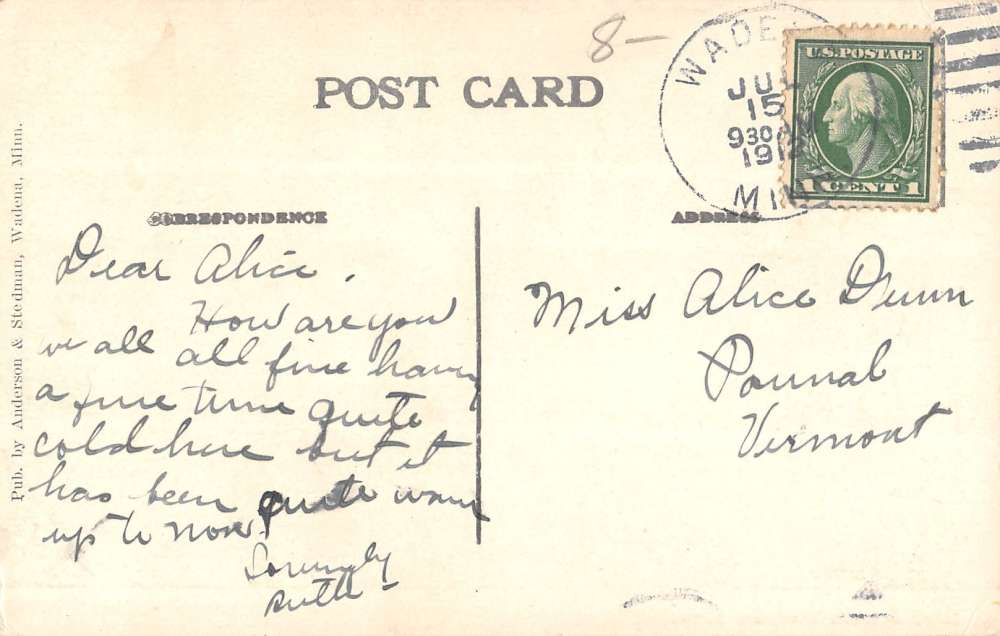 8-
POST CARD
WADE
JUL
15
930 AM
1912
MINN
U.S. POSTAGE
1 CENT 1
Pub. by Anderson & Stedman, Wadena, Minn.
CORRESPONDENCE
ADDRESS
Dear Alice.
How are you
we all all fine having
a fine time quite
cold here but it
has been quite warm
up to now.
Lovingly
Ruth-
Miss Alice Dunn
Pownal
Vermont